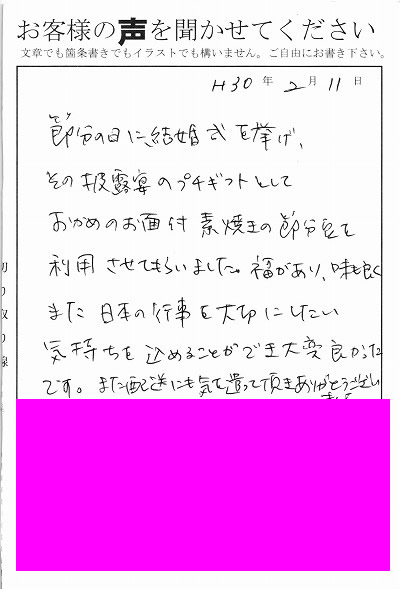 お客様の声を聞かせてください
文章でも箇条書きでもイラストでも構いません。ご自由にお書き下さい。
H30年 2月 11日
節分の日に、結婚式を挙げ、
その披露宴のプチギフトとして
おかめのお面付 素焼きの節分豆を
利用させてもらいました。福があり、味も良く
また 日本の行事を大切にしたい
気持ちを込めることができ大変良かった
です。また配送にも気を遣って頂きありがとうござい
切り取り線